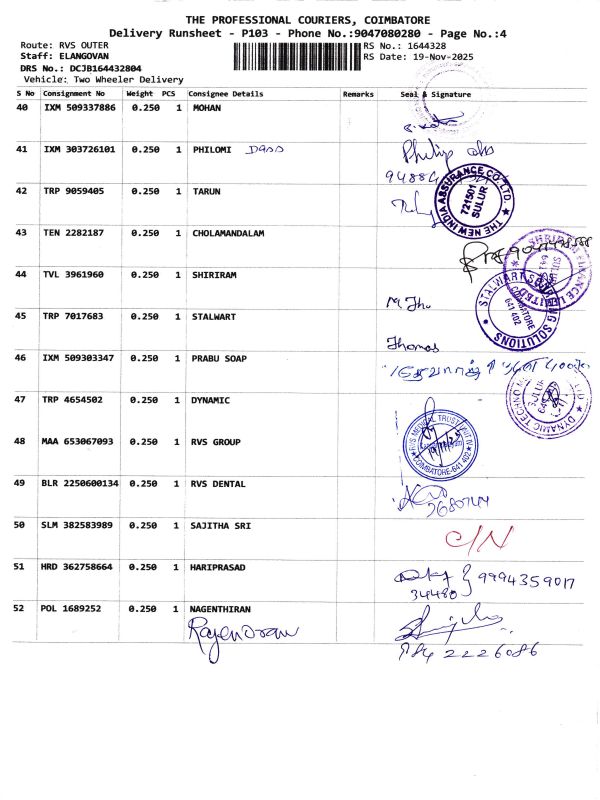 THE PROFESSIONAL COURIERS, COIMBATORE
Delivery Runsheet - P103 - Phone No.:9047080280 - Page No.:4
Route: RVS OUTER
RS No.: 1644328
Staff: ELANGOVAN
RS Date: 19-Nov-2025
DRS No.: DCJB164432804
Vehicle: Two Wheeler Delivery
S No Consignment No Weight PCS Consignee Details Remarks Seal & Signature
40 IXM 509337886 0.250 1 MOHAN
41 IXM 303726101 0.250 1 PHILOMI
Philip
94884
42 TRP 9059405 0.250 1 TARUN
THE NEW INDIA ASSURANCE CO. LTD.
721501
SULUR
43 TEN 2282187 0.250 1 CHOLAMANDALAM
44 TVL 3961960 0.250 1 SHIRIRAM
STALWART
SOLUTIONS
COIMBATORE
641 402
45 TRP 7017683 0.250 1 STALWART
Thomas
46 IXM 509303347 0.250 1 PRABU SOAP
47 TRP 4654502 0.250 1 DYNAMIC
DYNAMIC TECHNO
SULUR
48 MAA 653067093 0.250 1 RVS GROUP
RVS MEDICAL TRUST
COIMBATORE-641 402
49 BLR 2250600134 0.250 1 RVS DENTAL
50 SLM 382583989 0.250 1 SAJITHA SRI
C/N
51 HRD 362758664 0.250 1 HARIPRASAD
9994359017
34480
52 POL 1689252 0.250 1 NAGENTHIRAN
984 2226086